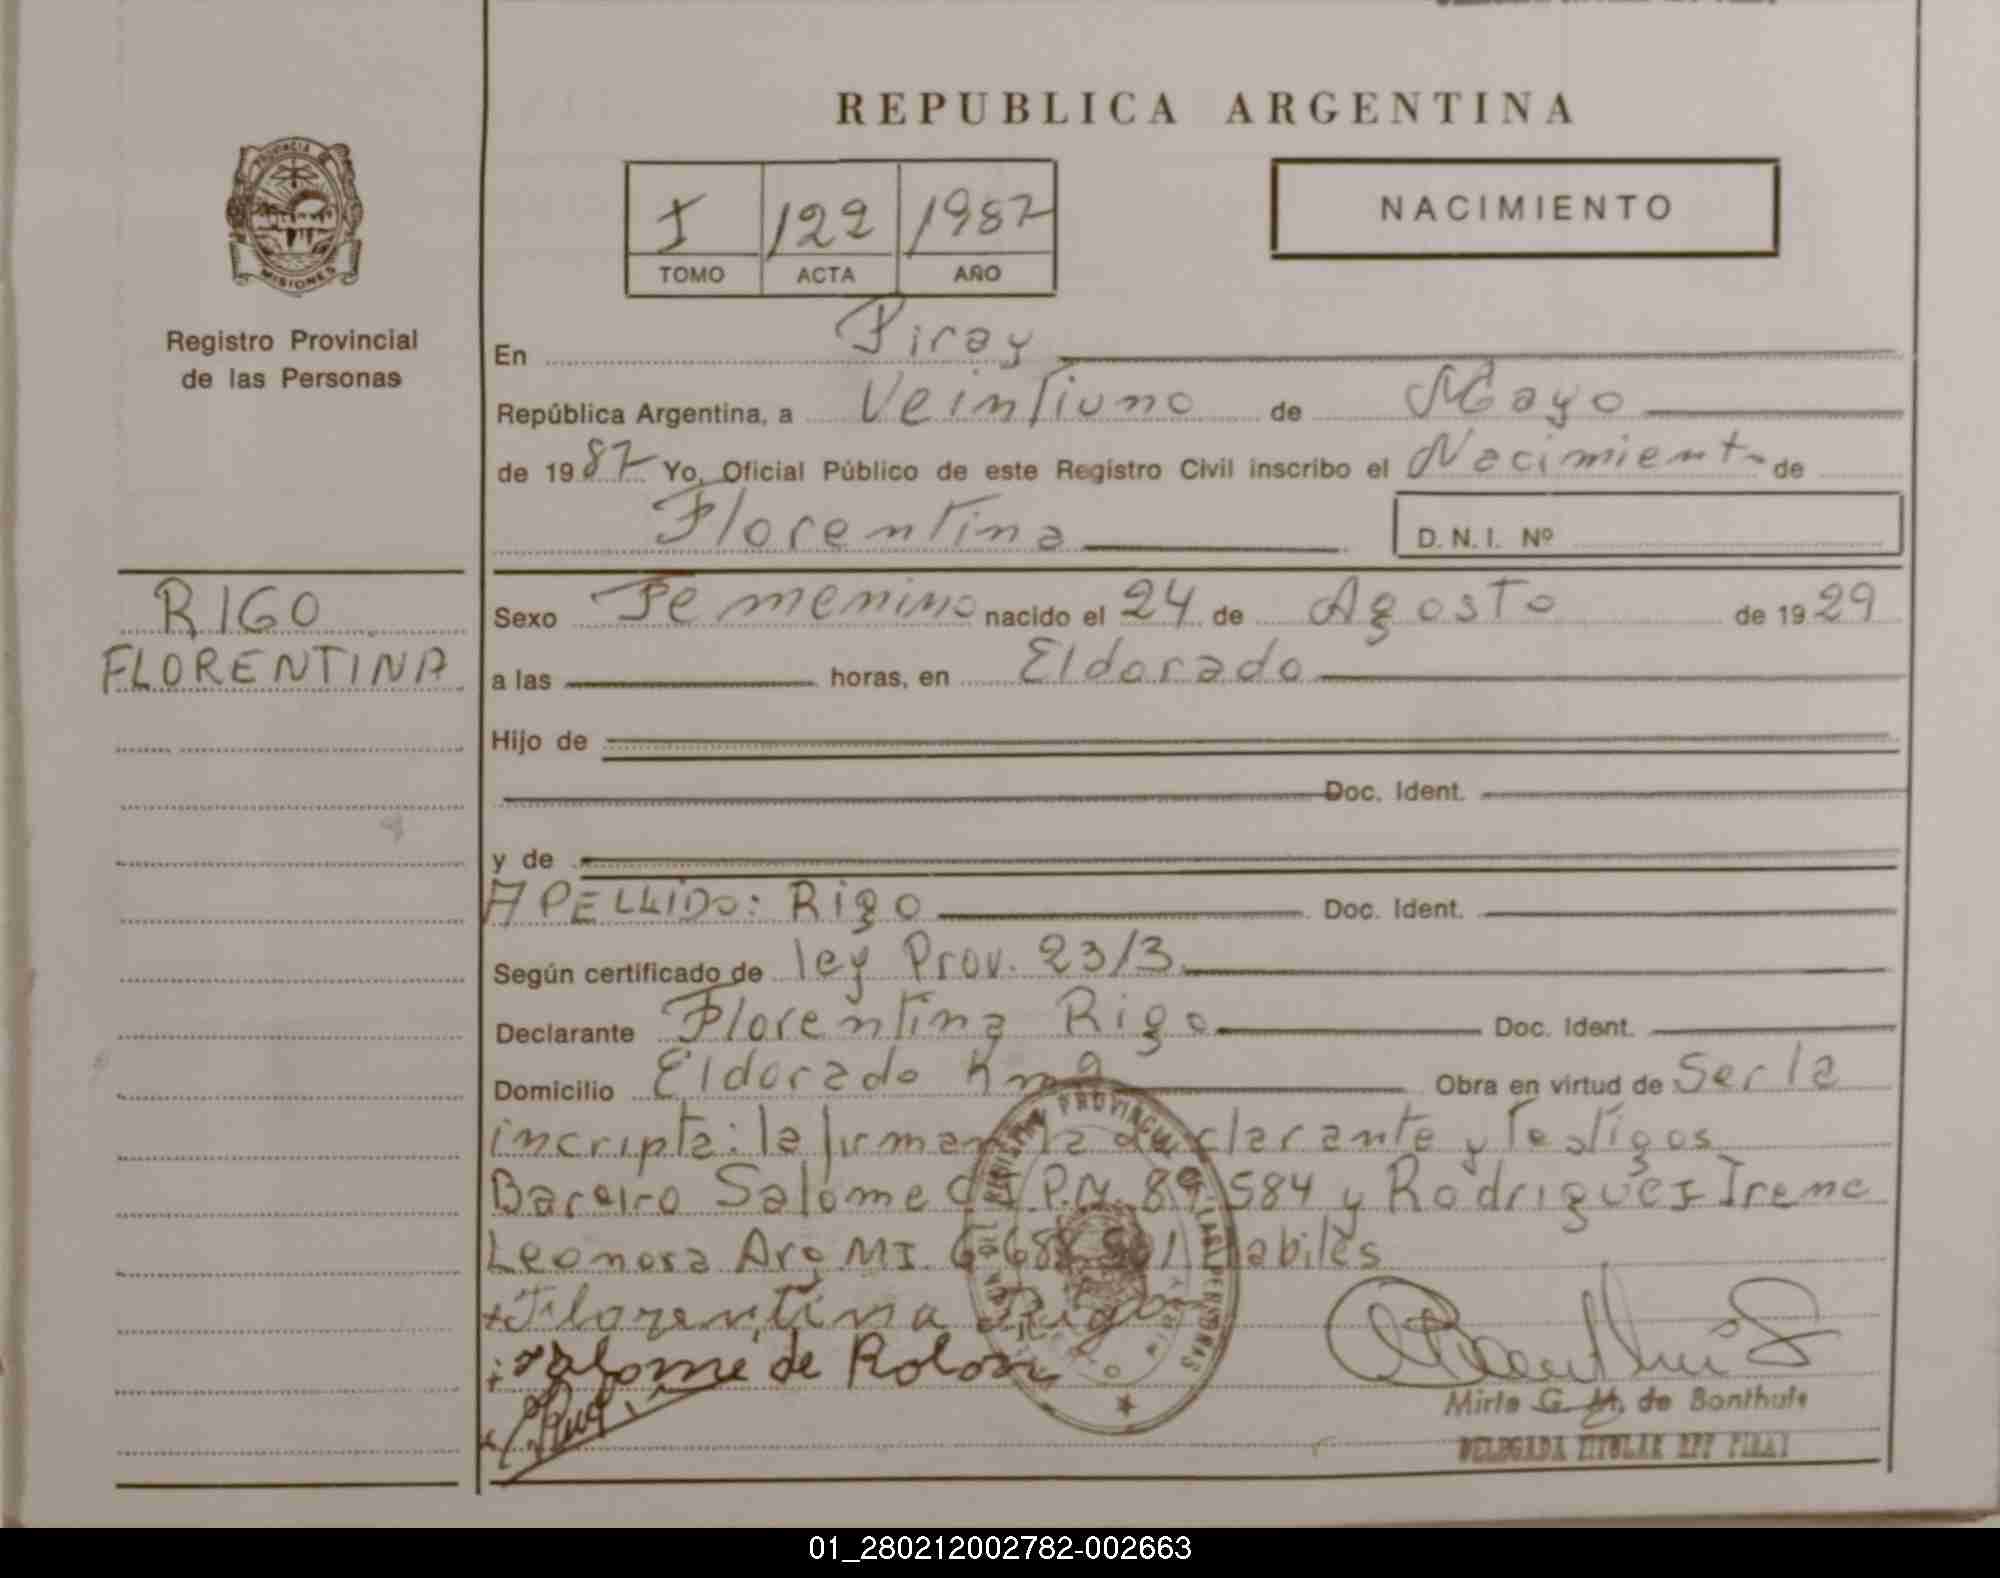 REPUBLICA ARGENTINA
PROVINCIA DE
MISIONES
Registro Provincial
de las Personas
I 122 1987
TOMO ACTA AÑO
NACIMIENTO
En Piray
República Argentina, a Veintiuno de Mayo
de 1987 Yo, Oficial Público de este Registro Civil inscribo el Nacimiento de
Florentina D.N.I. Nº
RIGO
FLORENTINA
Sexo Femenino nacido el 24 de Agosto de 1929
a las horas, en Eldorado
Hijo de
Doc. Ident.
y de
APELLIDO: Rigo Doc. Ident.
Según certificado de ley Prov. 23/3
Declarante Florentina Rigo Doc. Ident.
Domicilio Eldorado Km 9 Obra en virtud de Ser la
incripta: la firman la declarante y Testigos
Bareiro Salome C.I.P.N. 89.584 y Rodriguez Irene
Leonora Arg MI. habiles
Florentina Rigo
Salome de Rolon
Mirta G. M. de Bonthuis
DELEGADA TITULAR RPP PIRAY
01_280212002782-002663